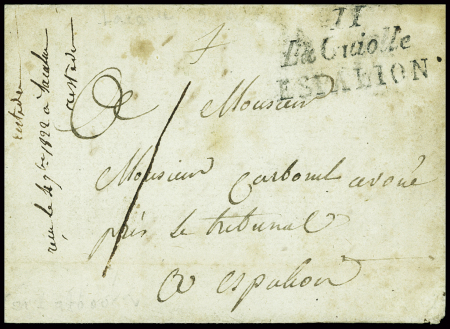 11
La Guiolle
ESPALION
Monsieur
Monsieur Carbonel avoué
près le tribunal
a espalion
reçu le 4 9bre 1822 a